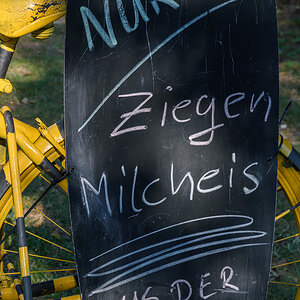 NUR
Ziegen
Milcheis
AUS DER